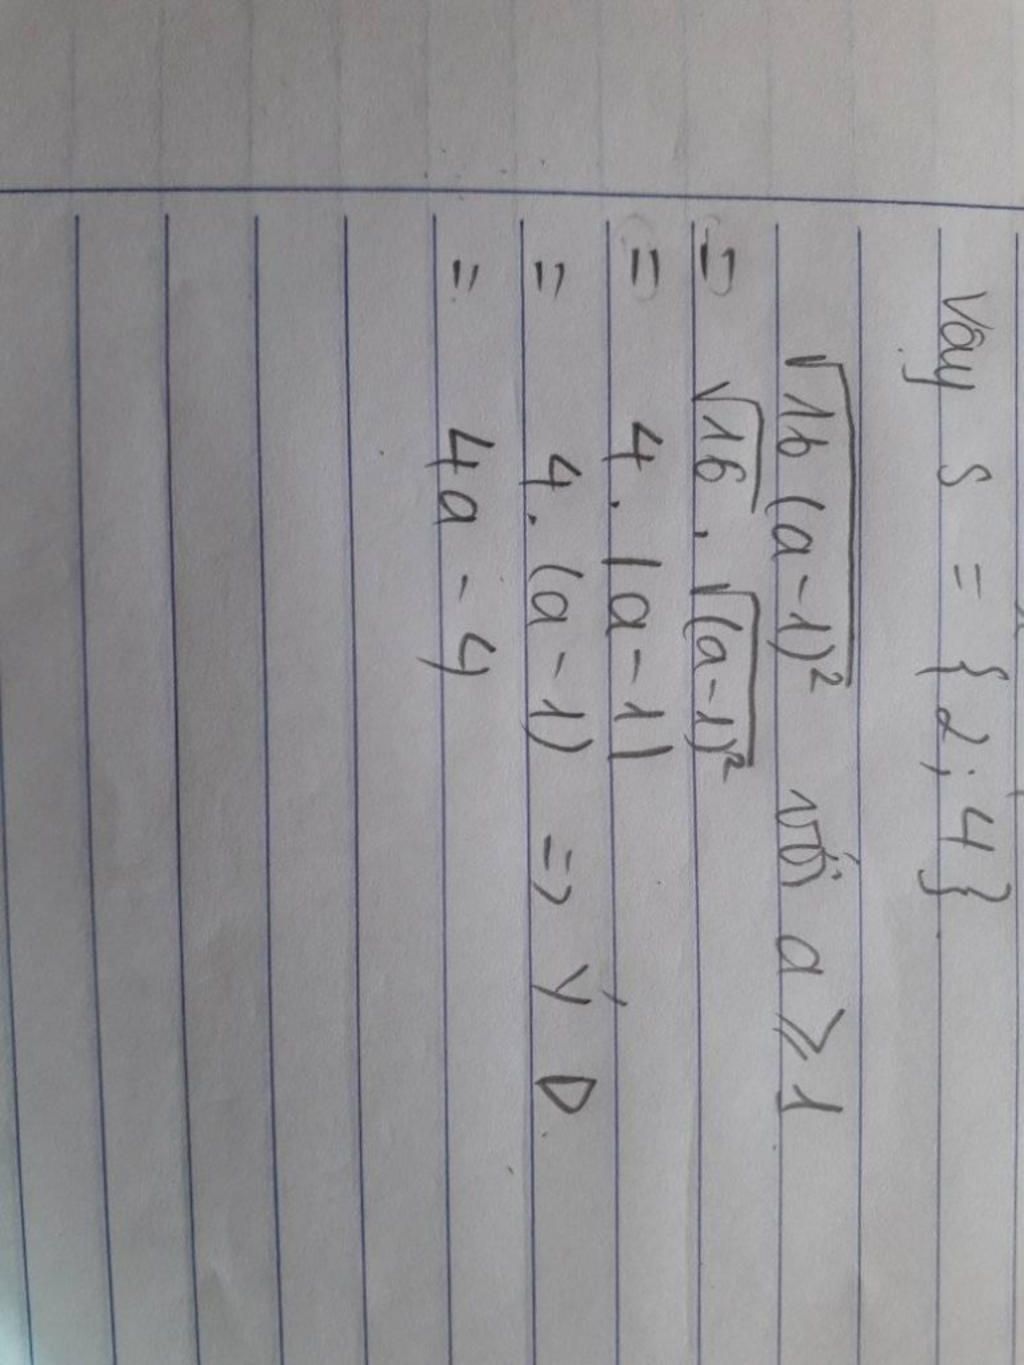 Vậy S = {2; 4}
√16(a-1)² với a ⩾ 1
= √16 . √(a-1)²
= 4 . |a-1|
= 4. (a-1) => ý D
= 4a - 4